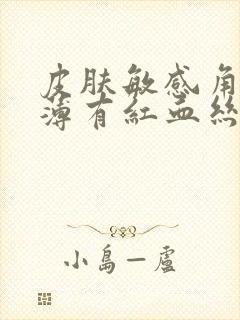 皮肤敏感角
薄有紅血絲
小島—盧